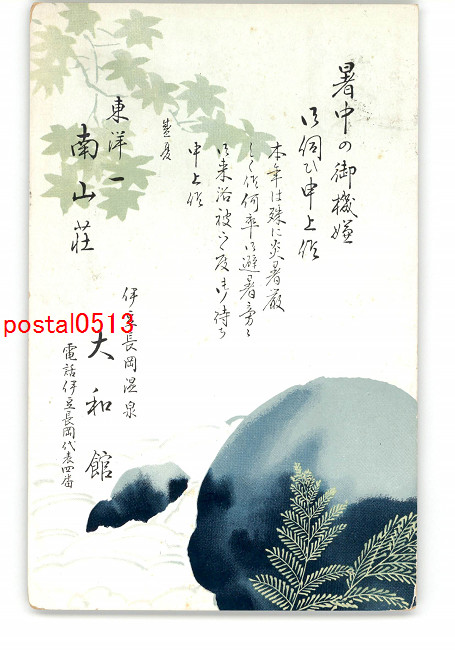 暑中の御機嫌
御伺ひ申上候
本年は殊に炎暑厳
しく候何卒御避暑旁々
御来浴被下度御待ち
申上候
盛夏
東洋一
南山荘
伊豆長岡温泉
大和館
電話伊豆長岡代表四番
postal0513